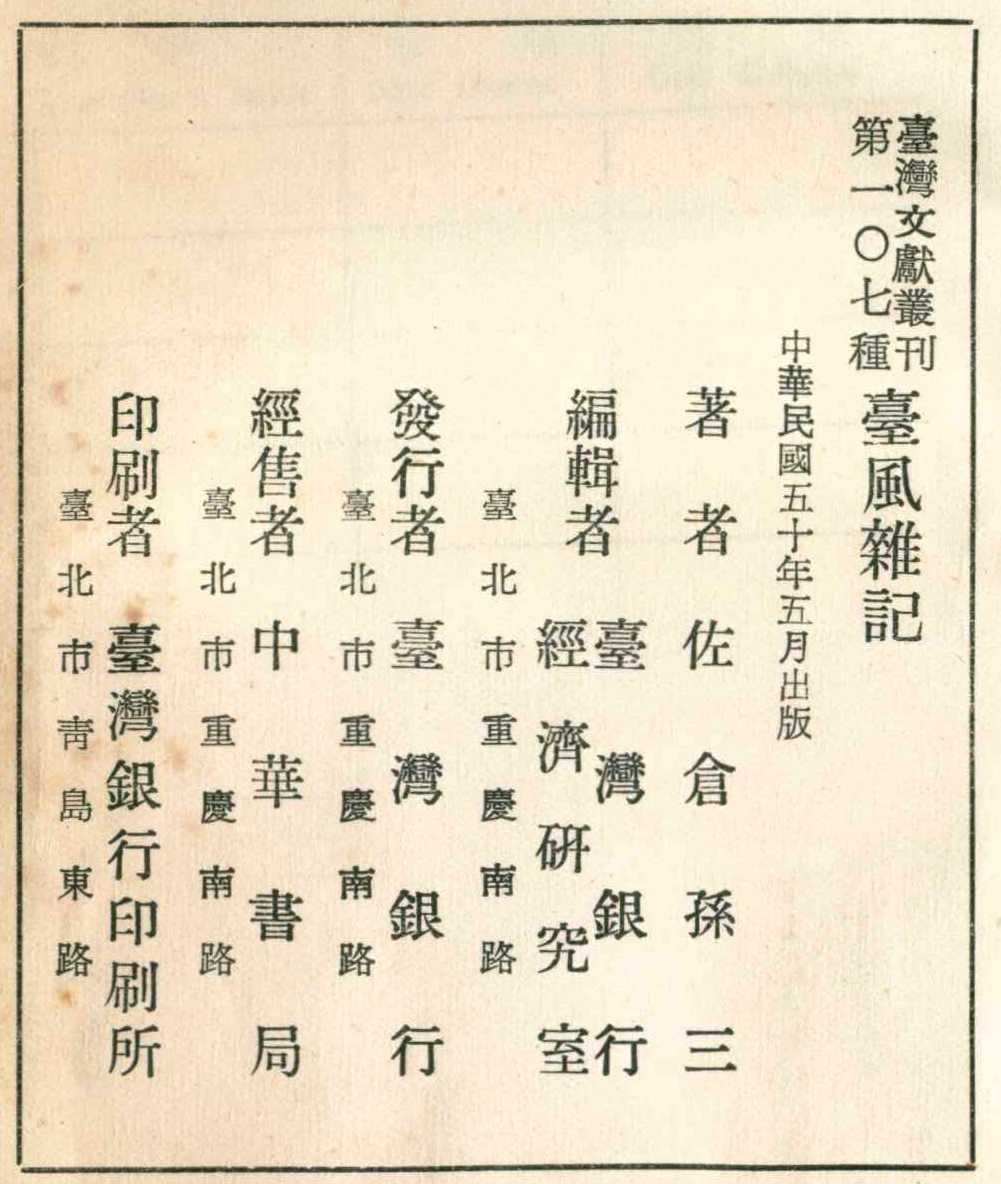 臺灣文獻叢刊
第一〇七種
臺風雜記
中華民國五十年五月出版
著者 佐倉孫三
編輯者 臺灣銀行
經濟研究室
臺北市重慶南路
發行者 臺灣銀行
臺北市重慶南路
經售者 中華書局
臺北市重慶南路
印刷者 臺灣銀行印刷所
臺北市靑島東路